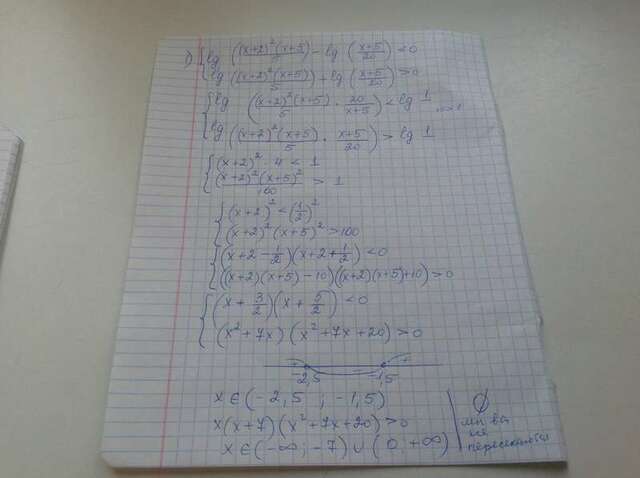 1) { lg ((x+2)²(x+5)/5) - lg ((x+5)/20) < 0
lg ((x+2)²(x+5)/5) + lg ((x+5)/20) > 0
{ lg ((x+2)²(x+5)/5 · 20/(x+5)) < lg 1
lg ((x+2)²(x+5)/5 · (x+5)/20) > lg 1
{ (x+2)² · 4 < 1
(x+2)²(x+5)²/100 > 1
{ (x+2)² < (1/2)²
(x+2)²(x+5)² > 100
{ (x+2-1/2)(x+2+1/2) < 0
((x+2)(x+5)-10)((x+2)(x+5)+10) > 0
{ (x+3/2)(x+5/2) < 0
(x²+7x)(x²+7x+20) > 0
+ - +
-2,5 -1,5
x ∈ (-2,5 ; -1,5)
x(x+7)(x²+7x+20) > 0
x ∈ (-∞; -7) ∪ (0; +∞)
∅
мн-ва
не